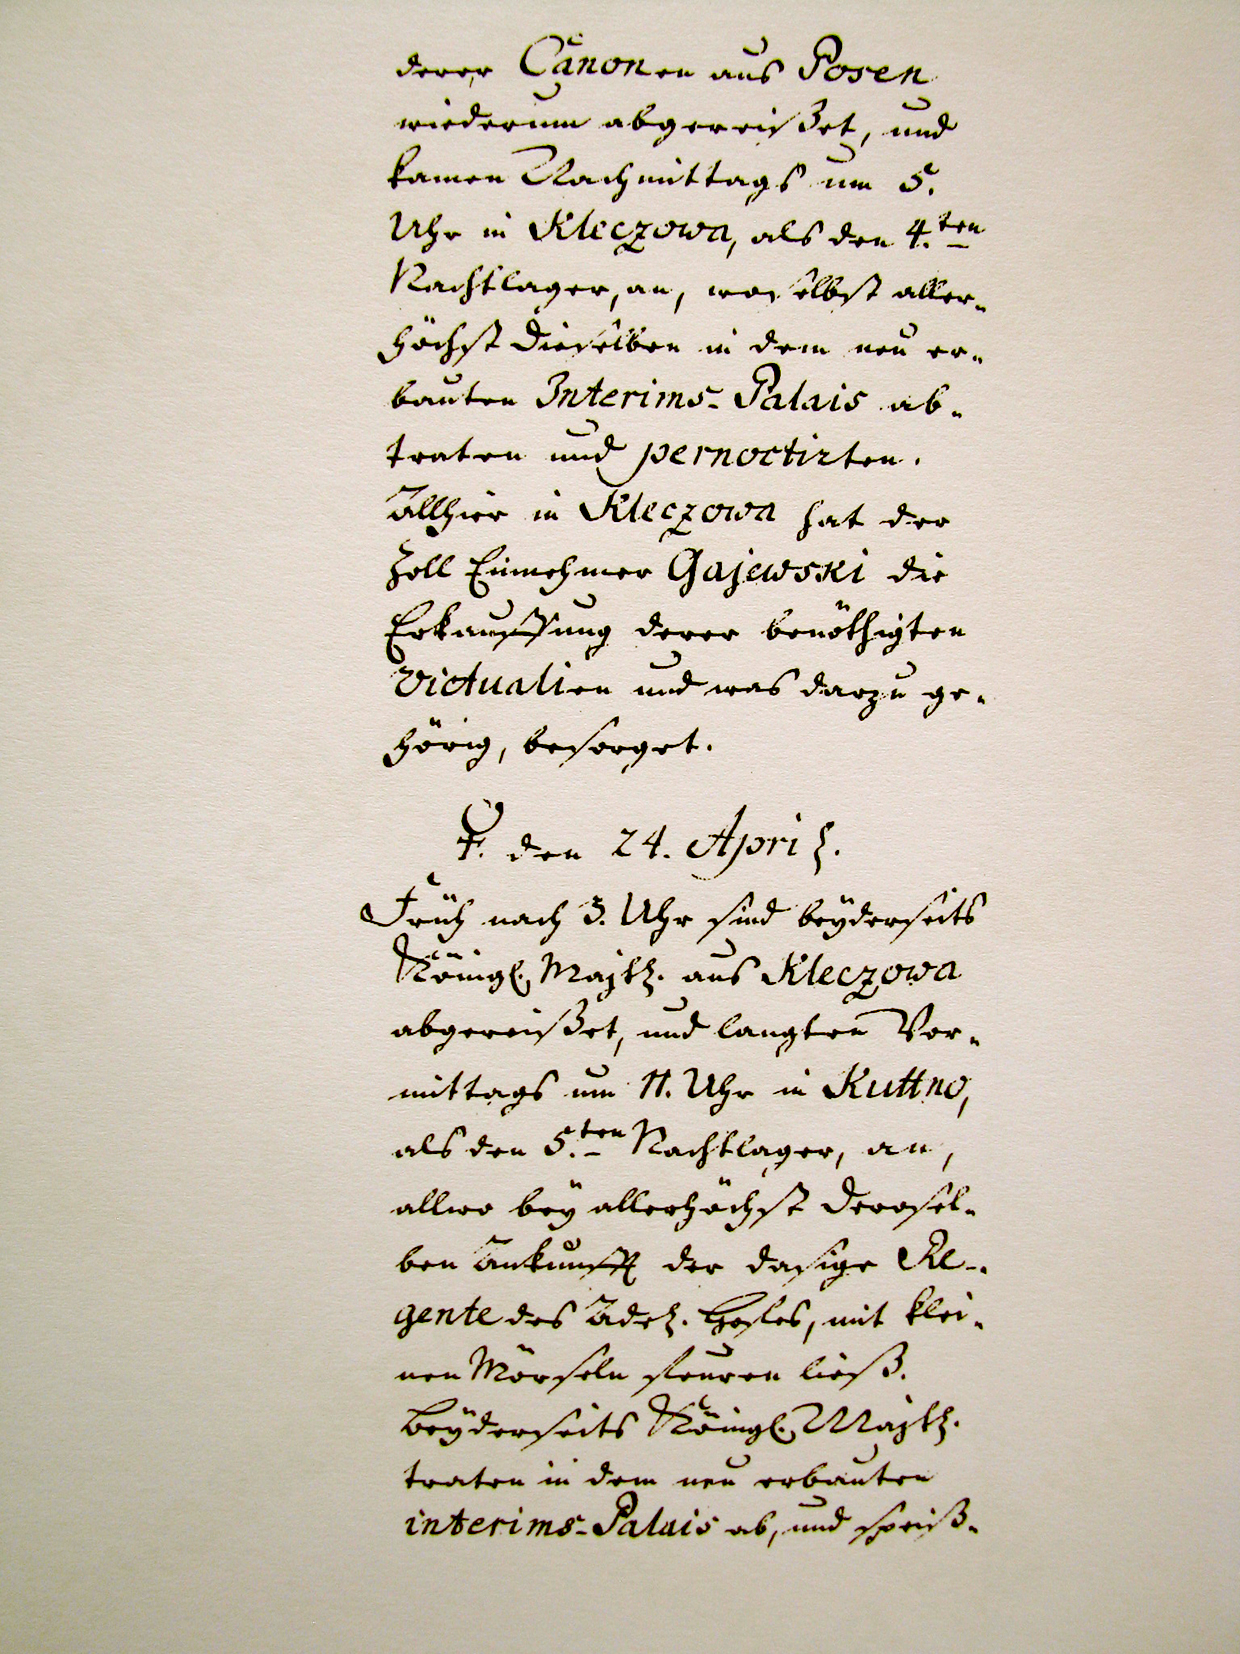 derer Canonen aus Posen
wiederum abgereißet, und
kamen Nachmittags um 5.
Uhr in Kleczowa, als den 4.ten
Nachtlager, an, woselbst aller-
höchst dieselben in dem neu er-
bauten Interims-Palais ab-
traten und pernoctirten.
Allhier in Kleczowa hat der
Zoll Einnehmer Gajewski die
Erkauffung derer benöthigten
victualien und was darzu ge-
hörig, besorget.
☿. den 24. April.
Früh nach 3. Uhr sind beyderseits
Königl. Majtt. aus Kleczowa
abgereißet, und langten Vor-
mittags um 11. Uhr in Kuttno,
als den 5.ten Nachtlager, an,
allwo bey allerhöchst Derosel-
ben Ankunfft der dasige Re-
gente des Adel. Hofes, mit klei-
nen Mörseln feuren ließ.
Beyderseits Königl. Majtt.
traten in dem neu erbauten
interims-Palais ab, und speiß-